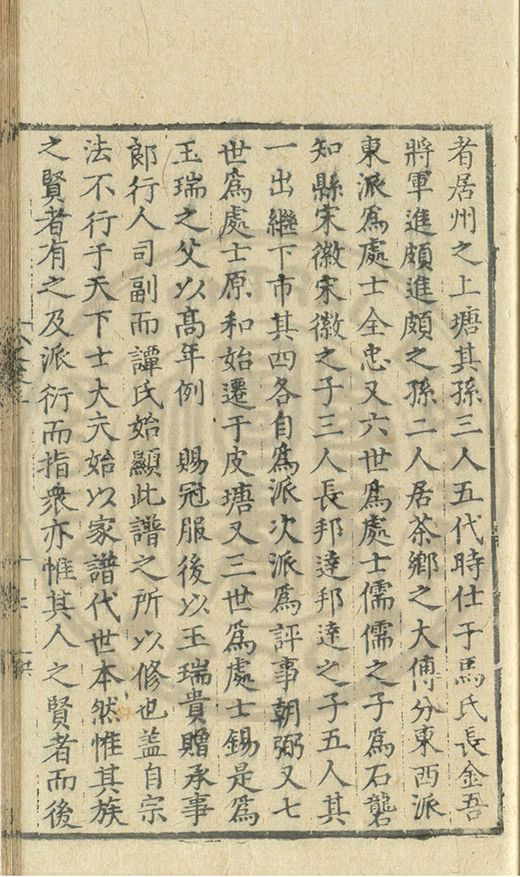 者居州之上塘其孫三人五代時仕于馬氏長金吾
將軍進頗進頗之孫二人居茶鄉之大傅分東西派
東派爲處士全忠又六世爲處士儒儒之子爲石礱
知縣宋徽宋徽之子三人長邦達邦達之子五人其
一出繼下市其四各自爲派次派爲評事朝弼又七
世爲處士原和始遷于皮塘又三世爲處士錫是爲
玉瑞之父以高年例　賜冠服後以玉瑞貴贈承事
郎行人司副而譚氏始顯此譜之所以修也盖自宗
法不行于天下士大夫始以家譜代世本然惟其族
之賢者有之及派衍而指衆亦惟其人之賢者而後